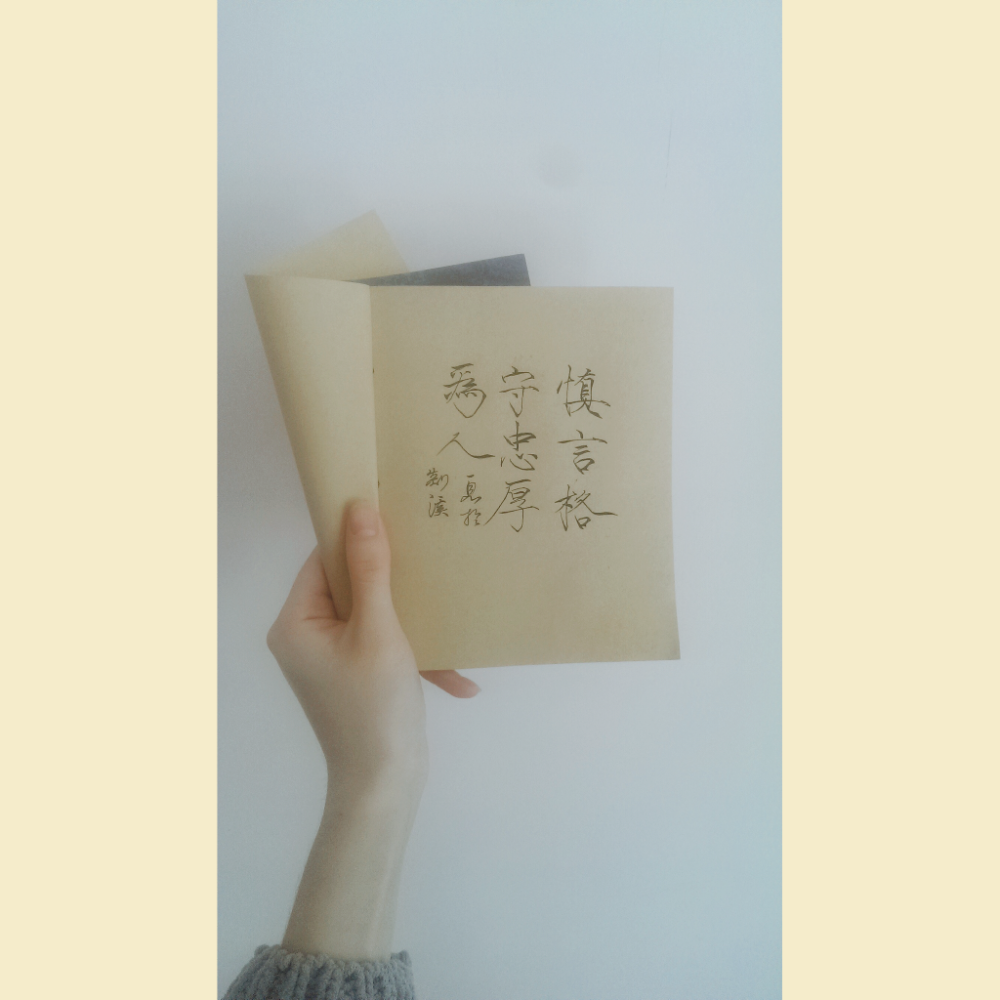 慎言格
守忠厚
爲人
夏於
荆溪